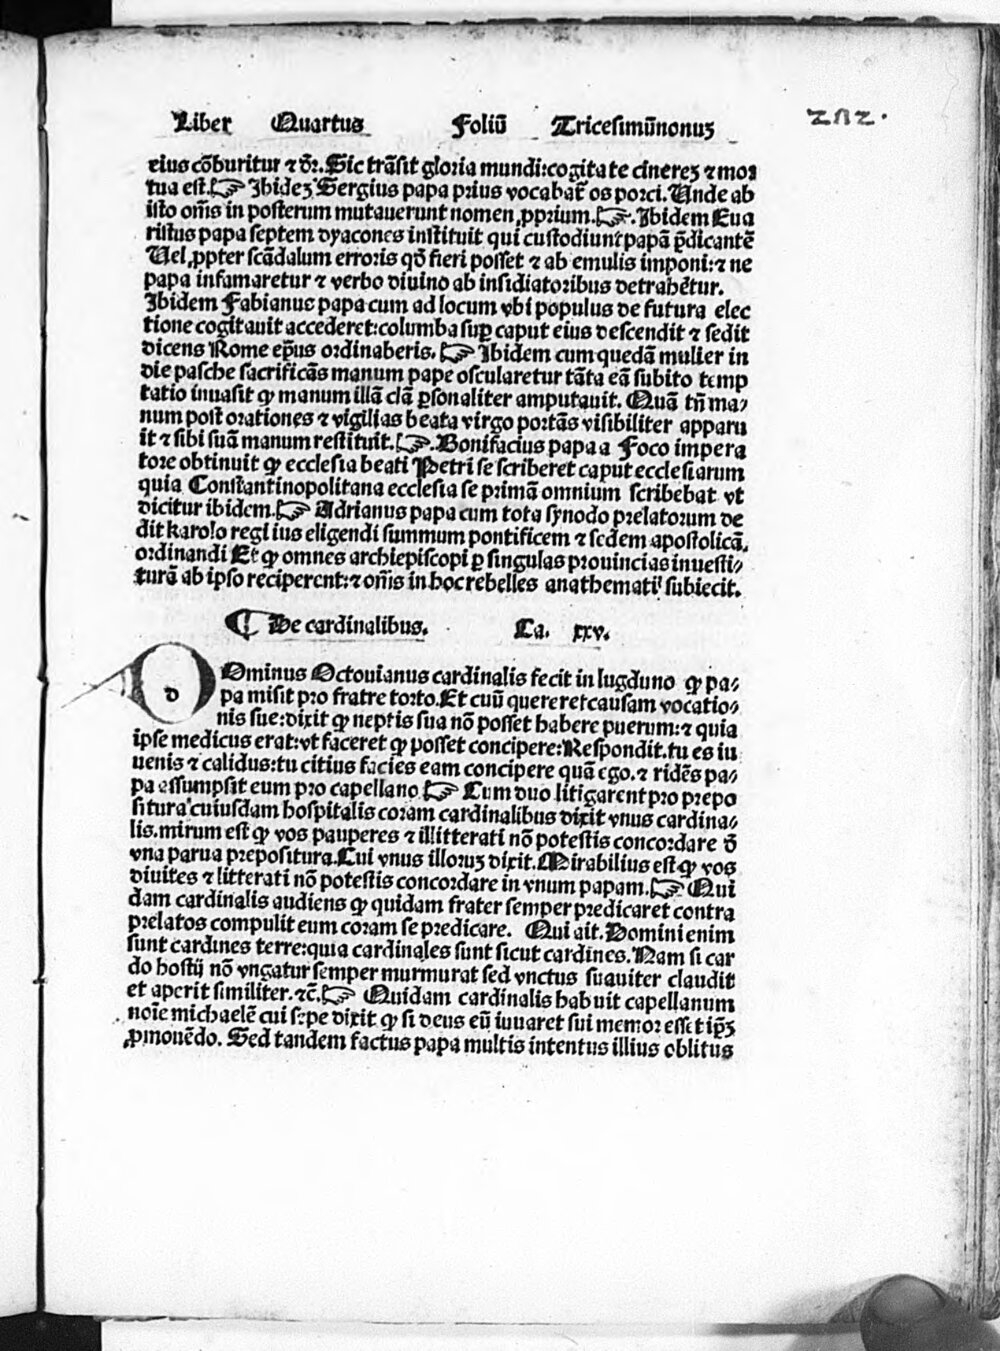 Liber Quartus Foliū Tricesimūnonuꝫ
eius cōburitur ⁊ dr̄. Sic trāsit gloria mundi: cogitate cinereꝫ ⁊ mor
tua est. ☞ Ibideꝫ Sergius papa prius vocabat̄ os porci. Unde ab
isto om̄s in posterum mutauerunt nomen ꝓprium. ☞. Ibidem Eua
ristus papa septem dyacones instituit qui custodiunt papā p̄dicantē
Uel ꝓpter scādalum erroris qd̄ fieri posset ⁊ ab emulis imponi: ⁊ ne
papa infamaretur ⁊ verbo diuino ab insidiatoribus detrahētur.
Ibidem Fabianus papa cum ad locum vbi populus de futura elec
tione cogitauit accederet: columba suꝑ caput eius descendit ⁊ sedit
dicens Rome ep̄us ordinaberis. ☞ Ibidem cum quedā mulier in
die pasche sacrificās manum pape oscularetur tāta eā subito temp
tatio inuasit ꝙ manum illā clā ꝑsonaliter amputauit. Quā tn̄ ma⸗
num post orationes ⁊ vigilias beata virgo portās visibiliter apparu
it ⁊ sibi suā manum restituit. ☞. Bonifacius papa a Foco impera
tore obtinuit ꝙ ecclesia beati Petri se scriberet caput ecclesiarum
quia Constantinopolitana ecclesia se primā omnium scribebat vt
dicitur ibidem. ☞ Adrianus papa cum tota synodo prelatorum de
dit karolo regi ius eligendi summum pontificem ⁊ sedem apostolicā.
ordinandi Et ꝙ omnes archiepiscopi ꝑ singulas prouincias inuesti⸗
turā ab ipso reciperent: ⁊ om̄s in hoc rebelles anathemati subiecit.
¶ De cardinalibus. Ca. xxv.
dOminus Octouianus cardinalis fecit in lugduno ꝙ pa⸗
pa misit pro fratre torto. Et cuū quereret causam vocatio⸗
nis sue: dixit ꝙ neptis sua nō posset habere puerum: ⁊ quia
ipse medicus erat: vt faceret ꝙ posset concipere: Respondit. tu es iu
uenis ⁊ calidus: tu citius facies eam concipere quā ego. ⁊ ridēs pa⸗
pa assumpsit eum pro capellano ☞ Cum duo litigarent pro prepo
situra cuiusdam hospitalis coram cardinalibus dixit vnus cardina⸗
lis. mirum est ꝙ vos pauperes ⁊ illitterati nō potestis concordare d̄
vna parua prepositura. Cui vnus illoruꝫ dixit. Mirabilius est ꝙ vos
diuites ⁊ litterati nō potestis concordare in vnum papam. ☞ Qui
dam cardinalis audiens ꝙ quidam frater semper predicaret contra
prelatos compulit eum coram se predicare. Qui ait. Domini enim
sunt cardines terre: quia cardinales sunt sicut cardines. Nam si car
do hostij nō vngatur semper murmurat sed vnctus suauiter claudit
et aperit similiter. ⁊c̄. ☞ Quidam cardinalis habuit capellanum
noīe michaelē cui sepe dixit ꝙ si deus eū iuuaret sui memor esset ip̄ꝫ
ꝓmouēdo. Sed tandem factus papa multis intentus illius oblitus